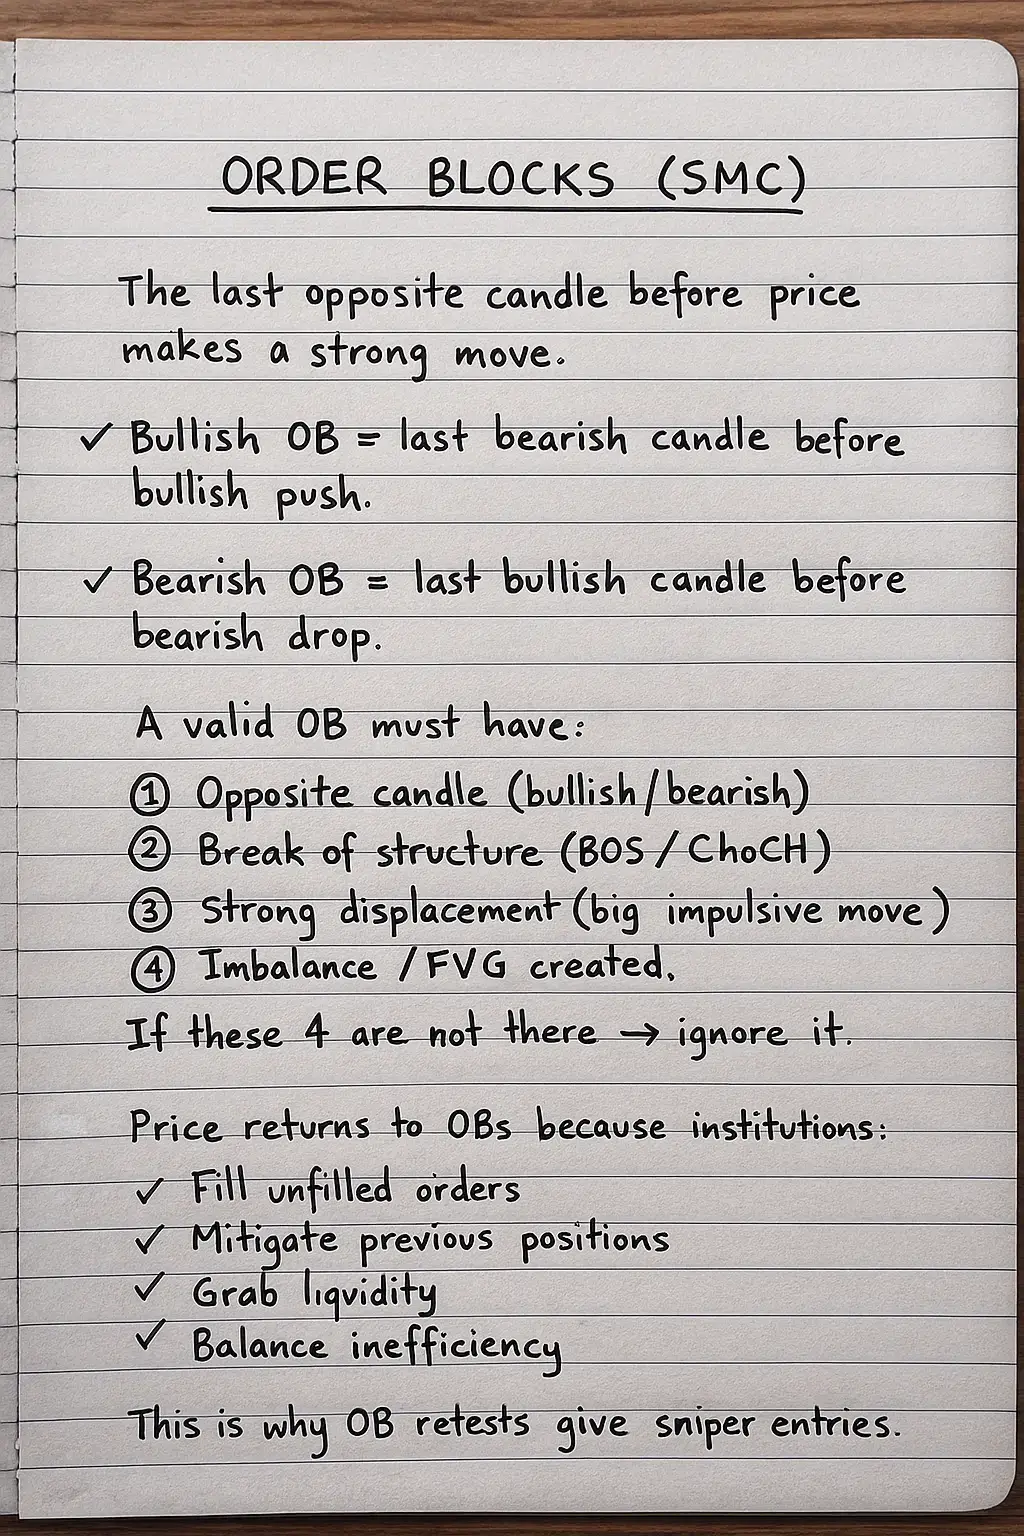 ORDER BLOCKS (SMC)
The last opposite candle before price
makes a strong move.
✓ Bullish OB = last bearish candle before
bullish push.
✓ Bearish OB = last bullish candle before
bearish drop.
A valid OB must have:
① Opposite candle (bullish/bearish)
② Break of structure (BOS / ChoCH)
③ Strong displacement (big impulsive move)
④ Imbalance / FVG created.
If these 4 are not there → ignore it.
Price returns to OBs because institutions:
✓ Fill unfilled orders
✓ Mitigate previous positions
✓ Grab liqvidity
✓ Balance inefficiency
This is why OB retests give sniper entries.